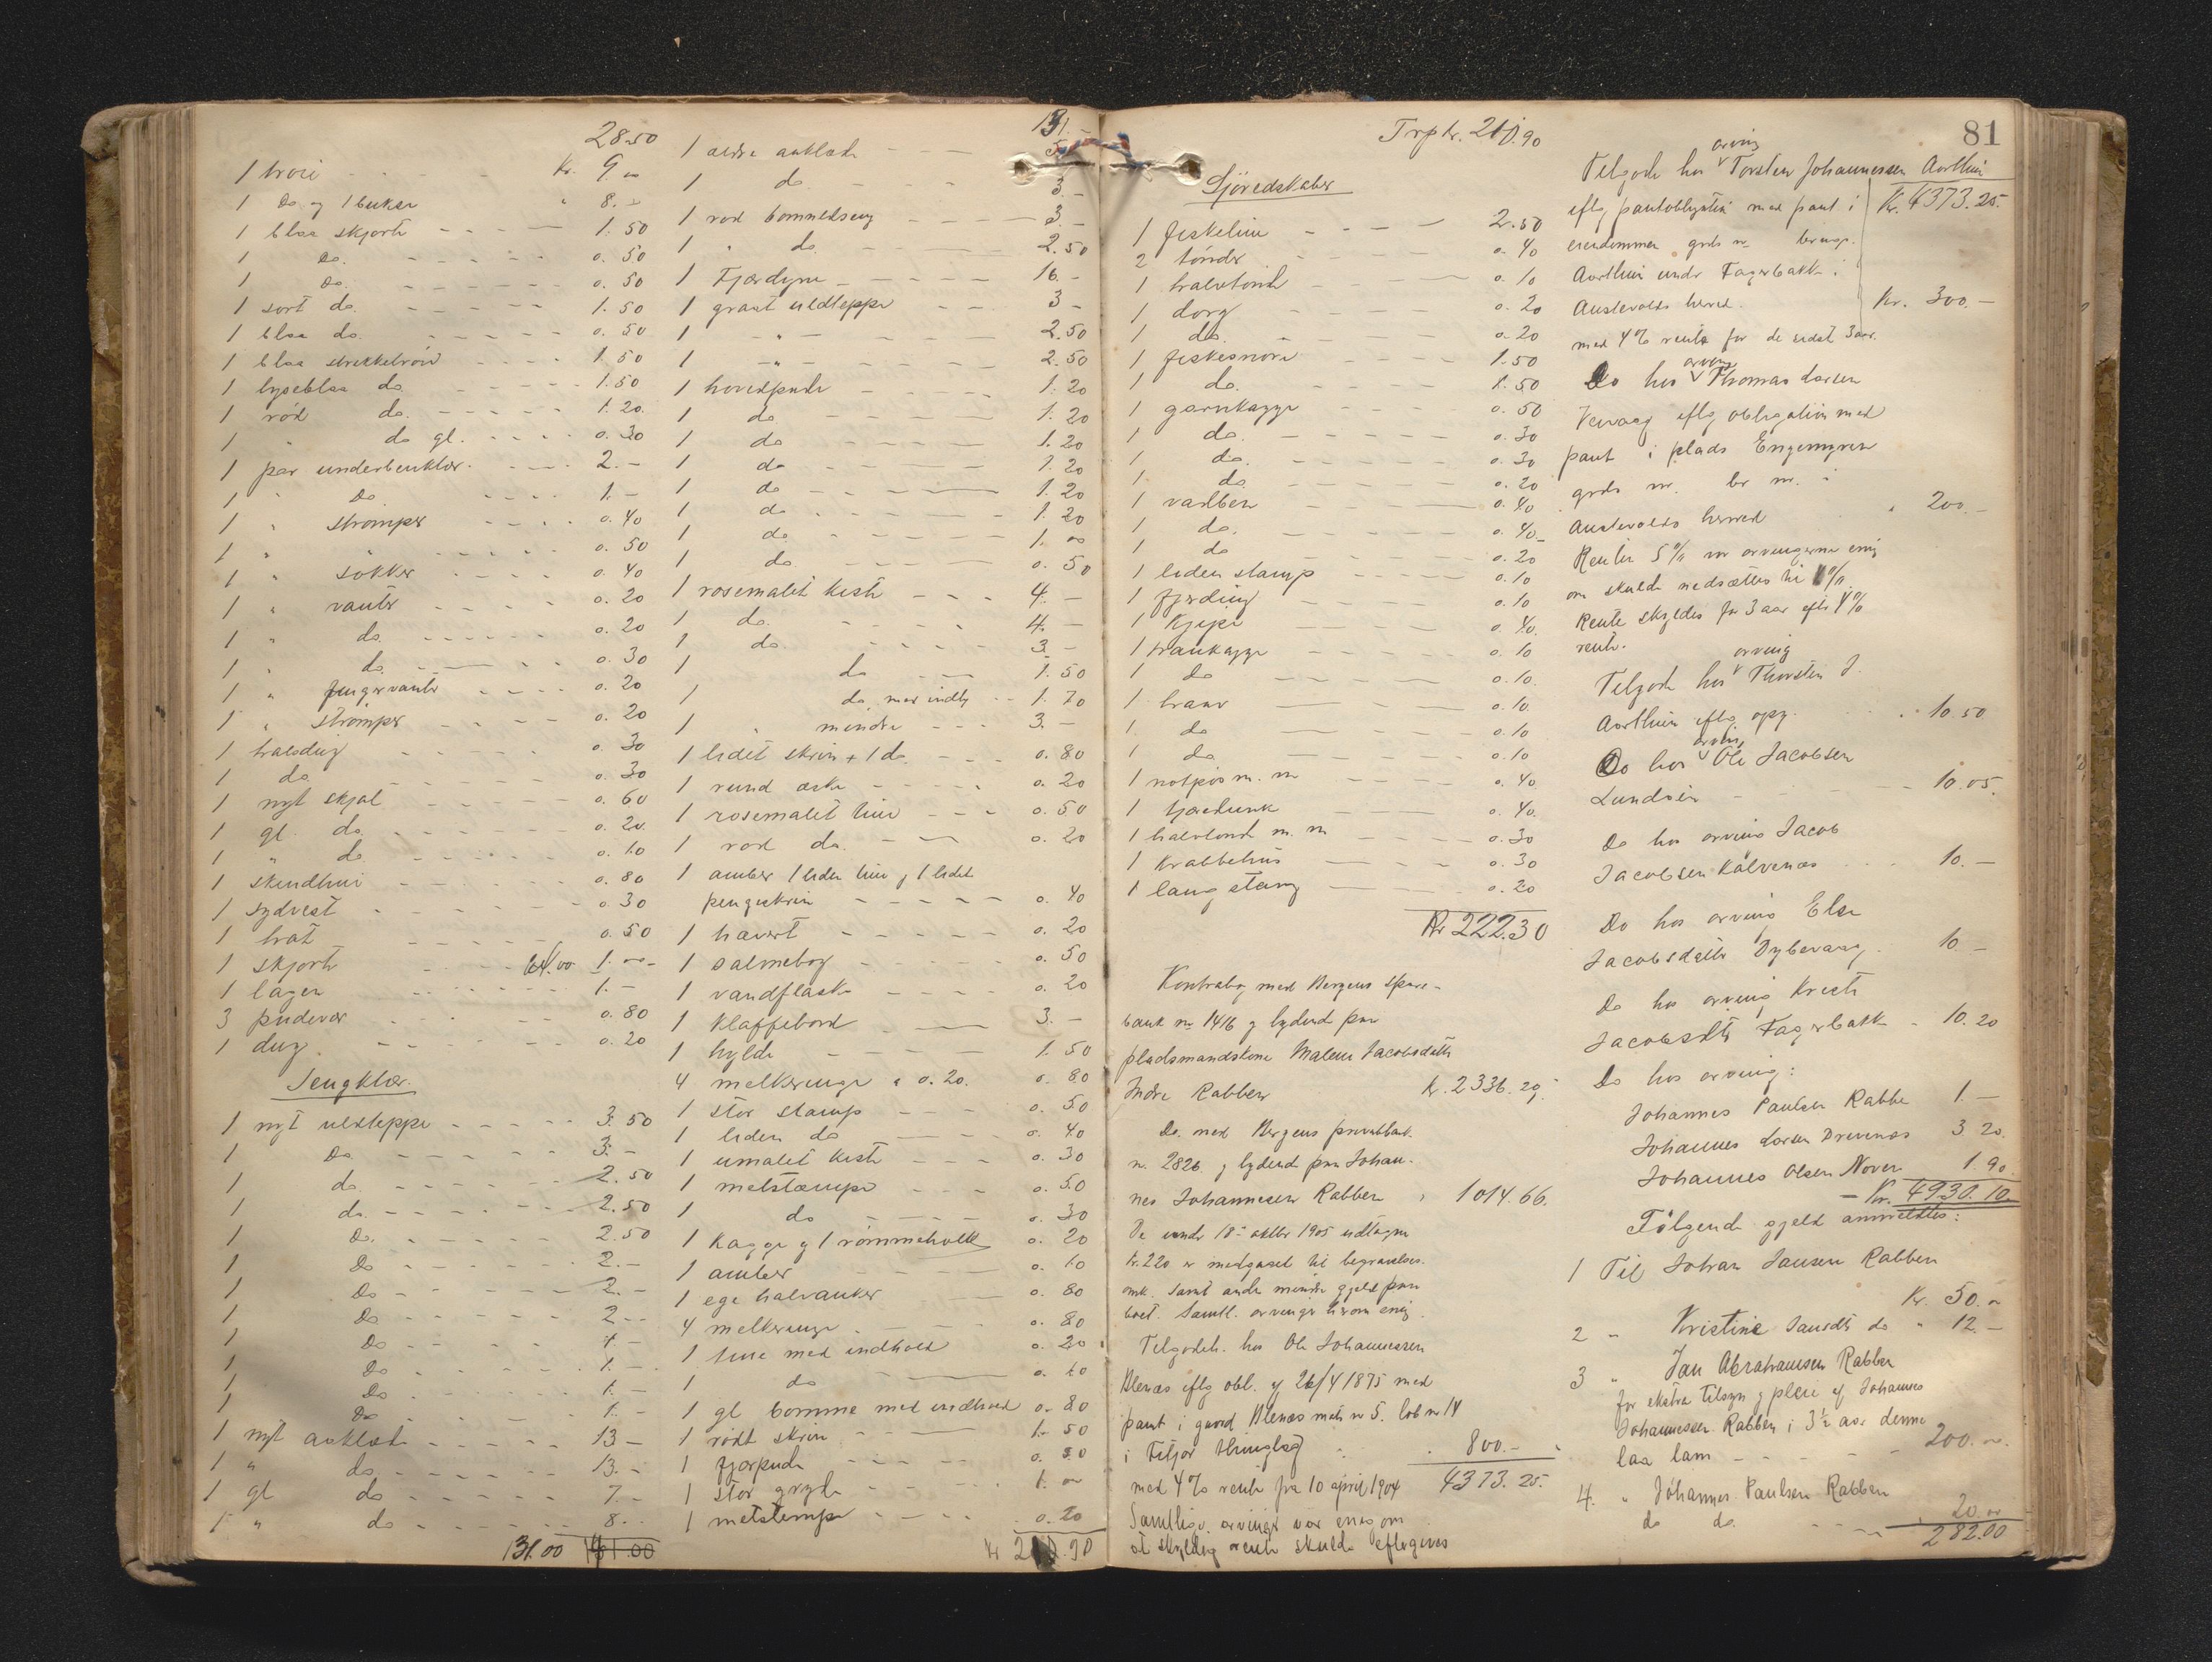 28.50
1 troie - - - Kr. 9.00
1 Do og 1 bukse " 8.-
1 blaa skjorte - - - 1.50
1 Do. - - - 0.50
1 Do. - - - 0.50
1 sort do. - - - 1.50
1 blaa do. - - - 0.50
1 blaa strikketröie - - - 1.50
1 lyseblaa do. - - - 1.50
1 röd do. - - - 1.20.
1 " do gl. - - - 0.30
1 par underbenklær. - - - 2.-
1 " Do - - - 1.-
1 " strömper - - - 0.40
1 " " - - - 0.50
1 " sokker - - - 0.40
1 " vanter - - - 0.20
1 " do. - - - 0.20
1 " do. - - - 0.30
1 " fingervanter - - - 0.20
1 " strömper - - - 0.20
1 halsdug - - - 0.30
1 do - - - 0.30
1 nyt skjal - - - 0.60
1 gl. do. - - - 0.20.
1 " do. - - - 0.10
1 skindhue - - - 0.80
1 sydvest - - - 0.30
1 hat - - - 0.50
1 skjorte - - - 64.00 1.00
1 lagen - - - 1.-
3 pudevar - - - 0.80
1 dug - - - 0.20
Sengklær.
1 nyt uldteppe - - - 3.50
1 Do. - - - 3.-
1 do. - - - 2.50
1 do. - - - 2.50
1 Do. - - - 2.50
1 Do - - - 2.-
1 Do - - - 2.-
1 Do - - - 2.-
1 Do - - - 1.-
1 Do - - - 1.-
1 Do - - - 1.-
1 Do - - - 1.-
1 nyt aaklæde - - - 13-
1 " do. - - - 13.-
1 gl do - - - 7.-
1 " do - - - 8.-
131.00
131.-
1 ældre aaklæde - - - 5.-
1 do - - - 3.-
1 rod bommeldseng - - - 3.-
1 " do. - - - 2.50
1 Fjærdyne - - - 16.-
1 graat uldteppe - - - 3-
1 - " - 2.50
1 - " - 2.50
1 hovedpude - - - 1.20
1 do - - - 1.20
1 do - - - 1.20
1 do - - - 1.20
1 do - - - 1.20
1 do - - - 1.20
1 do - - - 1.00
1 do - - - 0.50
1 rosemalet kiste - - - 4.-
1 do. - - - 4.-
1 do. - - - 3.-
1 do - - - 1.50
1 do, med indh - - 1.70
1 " mindre - - - 3.-
1 lidet skrin + 1 do - - - 0.80
1 rund æske - - - 0.20
1 rosemalet tine - - - 0.50
1 rod do. - - - 0.20
1 amber 1 liden tine og 1 lidet
pengeskrin - - - 0.40
1 - - - 0.20
1 salmebog - - - 0.50
1 vandflaske - - - 0.20
1 Klaffebord - - - 3.-
1 hylde - - - 1.50
4 melkeringe a 0.20. 0.80
1 stor stamp - - - 0.50
1 liden do - - - 0.40
1 umalet kiste - - - 0.30
1 melstampe - - - 0.50
1 do - - - 0.30
1 Kagge og 1 römmekolle 0.20
1 amber - - - 0.10
1 ege halvanker - - - 0.80
4 melkeringe - - - 0.80
1 tine med indhold 0.20
1 do - - - 0.10
1 gl bomme med indhold 0.80
1 rödt skrin - - - 1.50
1 fjærpude - - - 0.80
1 stor gryde - - - 1.00
1 - - - 0.20
Kr 210.90
Trpkr. 210.90
Sjöredskaber
1 fiskeline - - - 2.50
2 tönder - - - 0.40
1 halvtönde - - - 0.10
1 dorg - - - 0.20
1 do. - - - 0.20
1 fiskesnöre - - - 1.50
1 do. - - - 1.50
1 garnkagge - - - 0.50
1 do. - - - 0.30
1 do. - - - 0.30
1 do - - - 0.20
1 vadben - - - 0.40
1 do. - - - 0.40
1 do - - - 0.20
1 liden stamp - - - 0.10
1 fjerding - - - 0.10
1 Kjipe - - - 0.40.
1 trankagge - - - 0.10
1 do - - - 0.10.
1 - - - 0.10.
1. do - - - 0.10
1 do - - - 0.10
1 notpös m. m - - - 0.40
1 tjæredunk - - - 0.40.
1 halvtönde m. m - - - 0.30
1 krabbetine - - - 0.30
1 lang stang - - - 0.20
Kr 222.30
Kontrabog med Bergens Spare-
bank no 1416 og lydende paa
pladsmandskone Malene Jacobsdatter
Indre Rabben Kr. 2336.29.
Do. med Bergens privatbank
no. 2826 og lydende paa Johan-
nes Johannesen Rabben " 1014.66.
De under 18de oktbr 1905 udtagne
kr. 220 er medgaaet til begravelses-
omk. samt andre mindre gjeld paa
boet. Samtl. arvinger herom enig.
Tilgodeh. hos Ole Johannessen
Alenæs eflg obl. af 26/4 1875 med
pant i gaard Alenæs matr no 5. löb no 14
i Fitjar thinglag " . 800.-
med 4% rente fra 10 april 1904 4373.25.
Samtlige arvinger var enes om
at skyldig rente skulde eftergives
81
arving
Tilgode hos v Torsten Johannessen Aarthun
Kr. 4373.25.
eflg pantobligation med pant i
eiendommen grds no brugs.
Aarthun under Fagerbakke i
Austevolds herred. Kr. 300.-
med 4% rente for de sidst 3 aar.
arving
Do hos v Thomas Larsen
Vervaag eflg obligation med
pant i plads Engemyren
grds nr. br nr. i
Austevolds herred " 200.-
Renter 5% var arvingerne enig
om skulde nedsættes til 4%.
Rente skyldes for 3 aar efter 4%
rente.
arving
Tilgode hos v Thorsten J.
Aarthun eflg opg. . . . 10.50
arving
Do hos v Ole Jacobsen
Lundöen - - - 10.05.
Do hos arving Jacob
Jacobsen Kalvenæs . . . 10.-
Do hos arving Else
Jacobsdatter Dybevaag. 10.-
Do hos arving Kristi
Jacobsdtr Fagerbakk - 10.20
Do hos arving:
Johannes Paulsen Rabbe 1.-
Johannes Larsen Drevenæs 3.20.
Johannes Olsen 1.90.
- Kr. 4930.10.
Fölgende gjeld anmeldtes:
1 Til Johan Jansen Rabben
Kr. 50.00
2 " Kristine Jansdtr do " 12.-
3 " Jan Abrahamsen Rabben
for ekstra tilsyn og pleie af Johannes
Johannessen Rabben i 3½ aar denne
laa lam - - - 200.00.
4. " Johannes Paulsen Rabben
do do. - - - 20.00
282.00